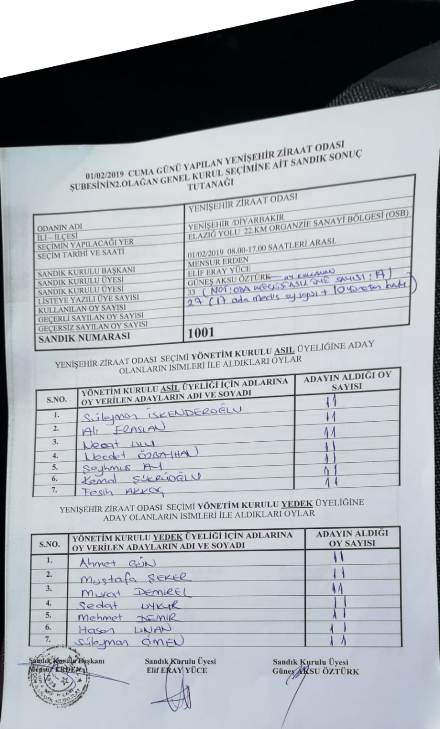 01/02/2019 CUMA GÜNÜ YAPILAN YENİŞEHİR ZİRAAT ODASI
ŞUBESİNİN2.OLAĞAN GENEL KURUL SEÇİMİNE AİT SANDIK SONUÇ
TUTANAĞI
ODANIN ADI YENİŞEHİR ZİRAAT ODASI
İLİ – İLÇESİ YENİŞEHİR /DİYARBAKIR
SEÇİMİN YAPILACAĞI YER ELAZIĞ YOLU 22.KM ORGANZİE SANAYİ BÖLGESİ (OSB)
SEÇİM TARİHİ VE SAATİ 01/02/2019 08.00-17.00 SAATLERİ ARASI.
SANDIK KURULU BAŞKANI MENSUR ERDEN
SANDIK KURULU ÜYESİ ELİF ERAY YÜCE
SANDIK KURULU ÜYESİ GÜNEŞ AKSU ÖZTÜRK
LİSTEYE YAZILI ÜYE SAYISI
KULLANILAN OY SAYISI
GEÇERLİ SAYILAN OY SAYISI
GEÇERSİZ SAYILAN OY SAYISI
SANDIK NUMARASI 1001
YENİŞEHİR ZİRAAT ODASI SEÇİMİ YÖNETİM KURULU ASIL ÜYELİĞİNE ADAY
OLANLARIN İSİMLERİ İLE ALDIKLARI OYLAR
S.NO. YÖNETİM KURULU ASIL ÜYELİĞİ İÇİN ADLARINA OY VERİLEN ADAYLARIN ADI VE SOYADI ADAYIN ALDIĞI OY SAYISI
1. Süleyman İSKENDEROĞLU 11
2. Ali ERASLAN 11
3. Nesat 11
4. Necdet ÖZBATHAN 11
5. Şeyhmus 11
6. Kemal 11
7. Fesih AKKOÇ 11
YENİŞEHİR ZİRAAT ODASI SEÇİMİ YÖNETİM KURULU YEDEK ÜYELİĞİNE
ADAY OLANLARIN İSİMLERİ İLE ALDIKLARI OYLAR
S.NO. YÖNETİM KURULU YEDEK ÜYELİĞİ İÇİN ADLARINA OY VERİLEN ADAYLARIN ADI VE SOYADI ADAYIN ALDIĞI OY SAYISI
1. Ahmet GÜN 11
2. Mustafa ŞEKER 11
3. Murat DEMİREL 11
4. Sedat UYKUR 11
5. Mehmet DEMİR 11
6. Hasan LİNAN 11
7. Süleyman ÖMEN 11
Sandık Kurulu Başkanı Sandık Kurulu Üyesi Sandık Kurulu Üyesi
Mensur ERDEN Elif ERAY YÜCE Güneş AKSU ÖZTÜRK